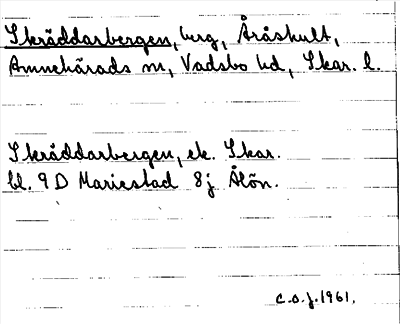 Skräddarbergen, berg, Åråshult,
Amnehärads sn, Vadsbo hd, Skar. l.
Skräddarbergen, ek. Skar.
bl. 9D Mariestad 8j Ålön.
C.O.J. 1961.